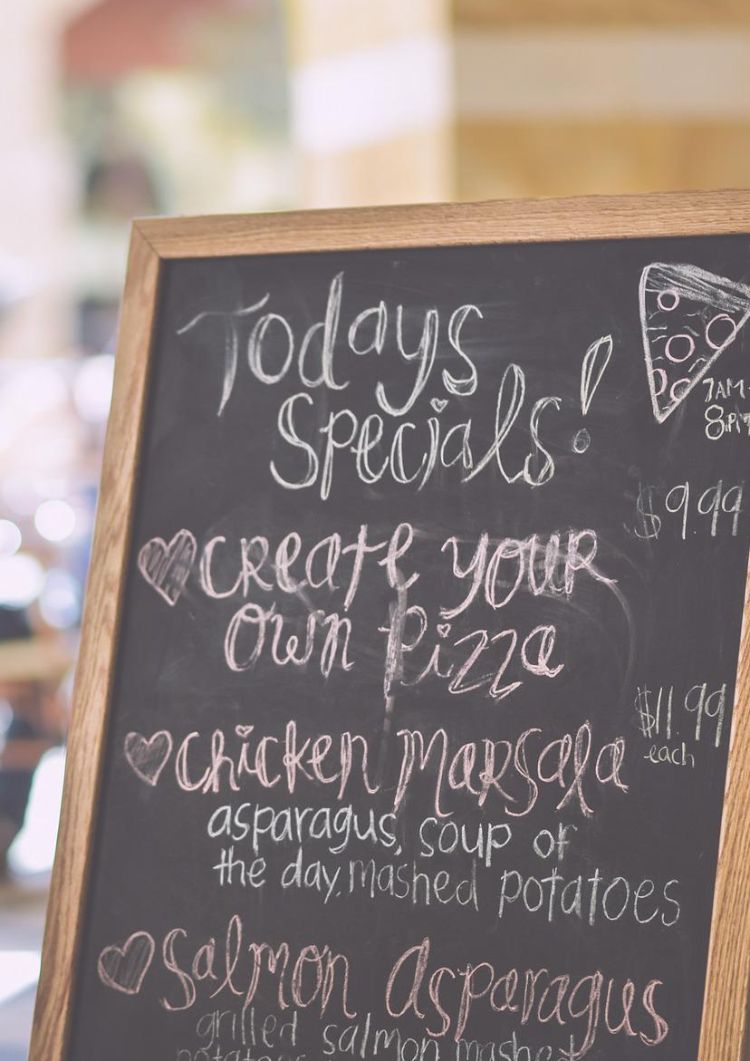 Todays
Specials!
7AM
$9.99
Create Your
Own Pizza
$11.99
each
Chicken Marsala
asparagus, soup of
the day, mashed potatoes
Salmon Asparagus
grilled salmon mashed
potatoes